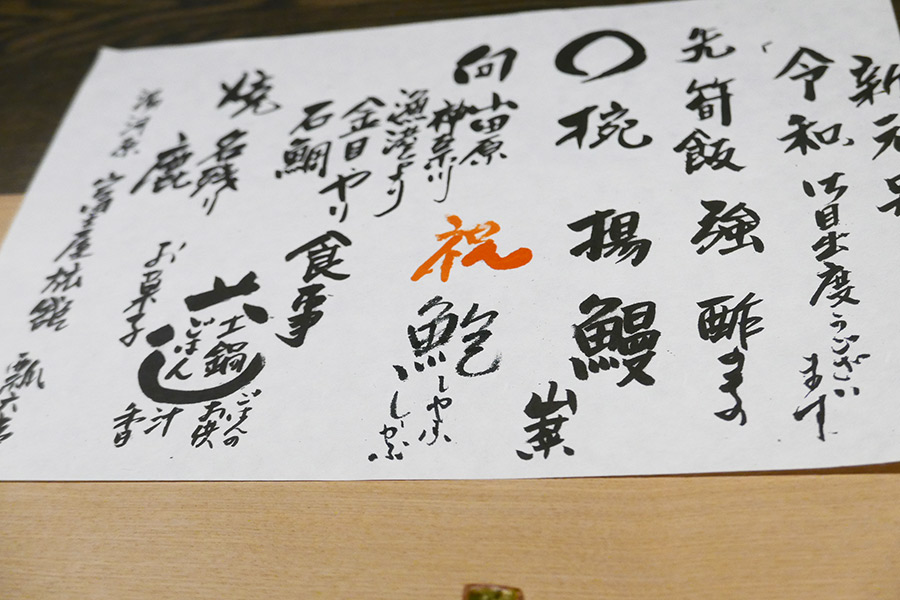 新元号
令和 御目出度うございます
先 筍飯 強 酢
椀 揚 鰻
山葉
向 小田原
神奈川
漁港より
金目 やり
石鯛
祝 鮑 しゃぶしゃぶ
食事
土鍋ごはん
ごはんのお供
汁
香
焼 名残り
鹿
お菓子
湯河原 富士屋旅館 瓢六亭